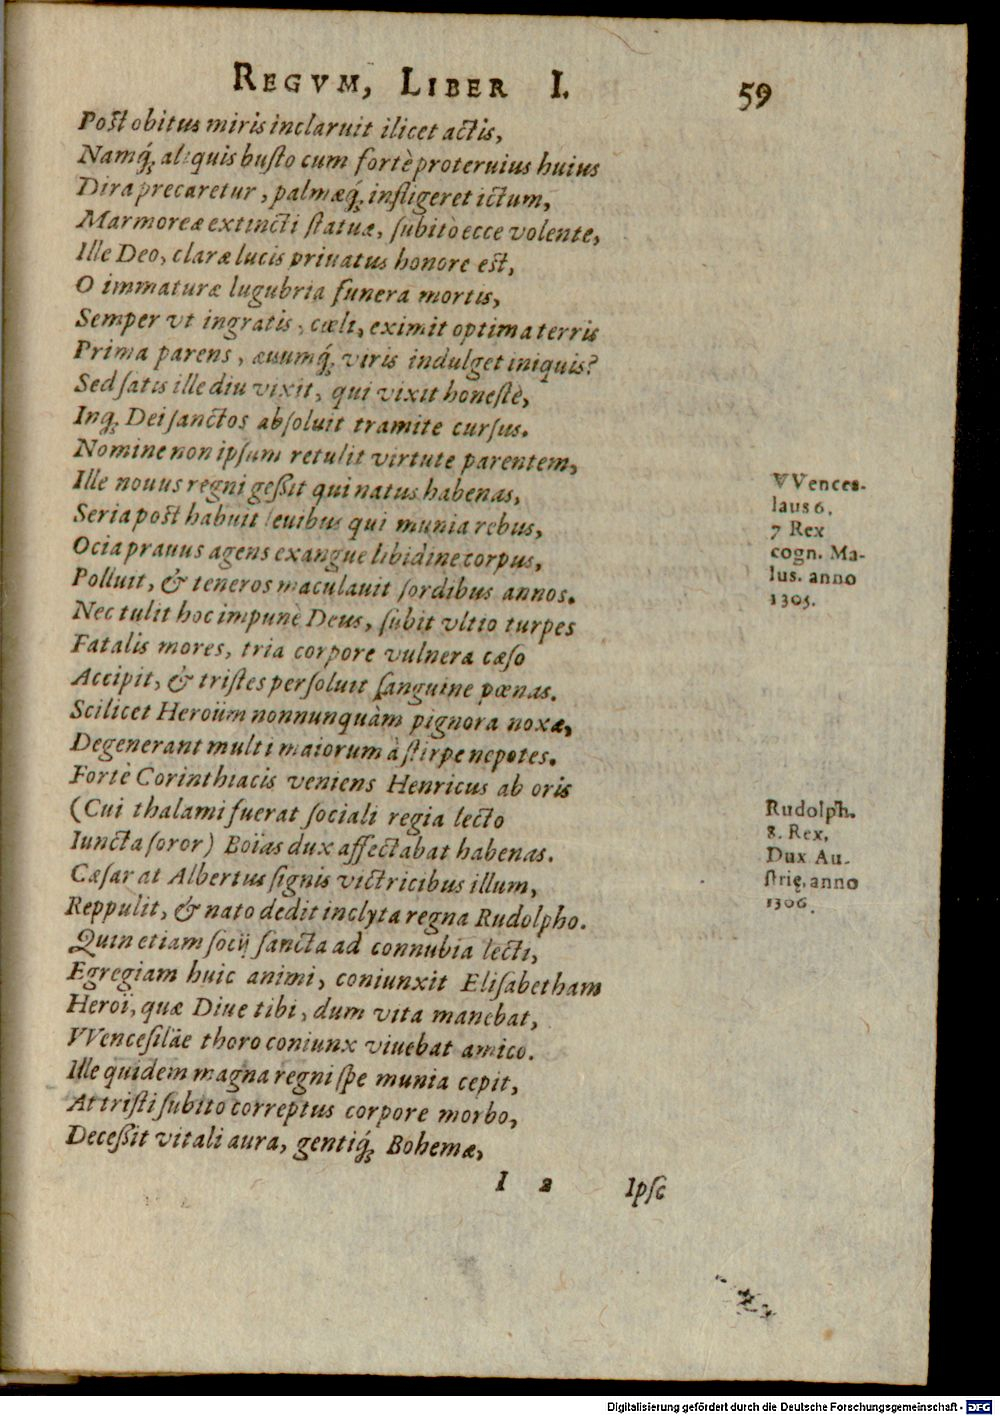 REGVM, LIBER I. 59
Post obitus miris inclaruit ilicet actis,
Namq́; aliquis busto cum fortè proteruius huius
Dira precaretur, palmæq́; infligeret ictum,
Marmoreæ extincti statuæ, subitò ecce volente,
Ille Deo, claræ lucis priuatus honore est,
O immaturæ lugubria funera mortis,
Semper vt ingratis, cœli, eximit optima terris
Prima parens, æuumq́; viris indulget iniquis?
Sed satis ille diu vixit, qui vixit honestè,
Inq; Dei sanctos absoluit tramite cursus.
Nomine non ipsum retulit virtute parentem,
Ille nouus regni gessit qui natus habenas,
Seria post habuit leuibus qui munia rebus,
Ocia prauus agens exangue libidine corpus,
Polluit, & teneros maculauit sordibus annos.
Nec tulit hoc impunè Deus, subit vltio turpes
Fatalis mores, tria corpore vulnera cæso
Accipit, & tristes persoluit sanguine pœnas.
Scilicet Heroüm nonnunquàm pignora noxæ,
Degenerant multi maiorum à stirpe nepotes.
Fortè Corinthiacis veniens Henricus ab oris
(Cui thalami fuerat sociali regia lecto
Iuncta soror) Boïas dux affectabat habenas.
Cæsar at Albertus signis victricibus illum,
Reppulit, & nato dedit inclyta regna Rudolpho.
Quin etiam socij sancta ad connubia lecti,
Egregiam huic animi, coniunxit Elisabetham
Heroï, quæ Diue tibi, dum vita manebat,
VVencesiläe thoro coniunx viuebat amico.
Ille quidem magna regni spe munia cepit,
At tristi subito correptus corpore morbo,
Decessit vitali aura, gentiq́; Bohemæ,
I 2 Ipse
VVences-
laus 6.
7 Rex
cogn. Ma-
lus. anno
1305.
Rudolph.
8. Rex,
Dux Au-
strię, anno
1306.
Digitalisierung gefördert durch die Deutsche Forschungsgemeinschaft - DFG